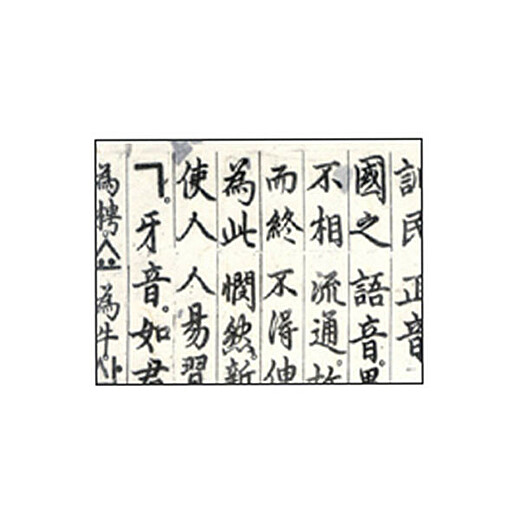 訓民正音
國之語音。異
不相流通。故
而終不得伸
為此憫然。新
使人人易習
ㄱ。牙音。如君
為梬。쇼為牛。사